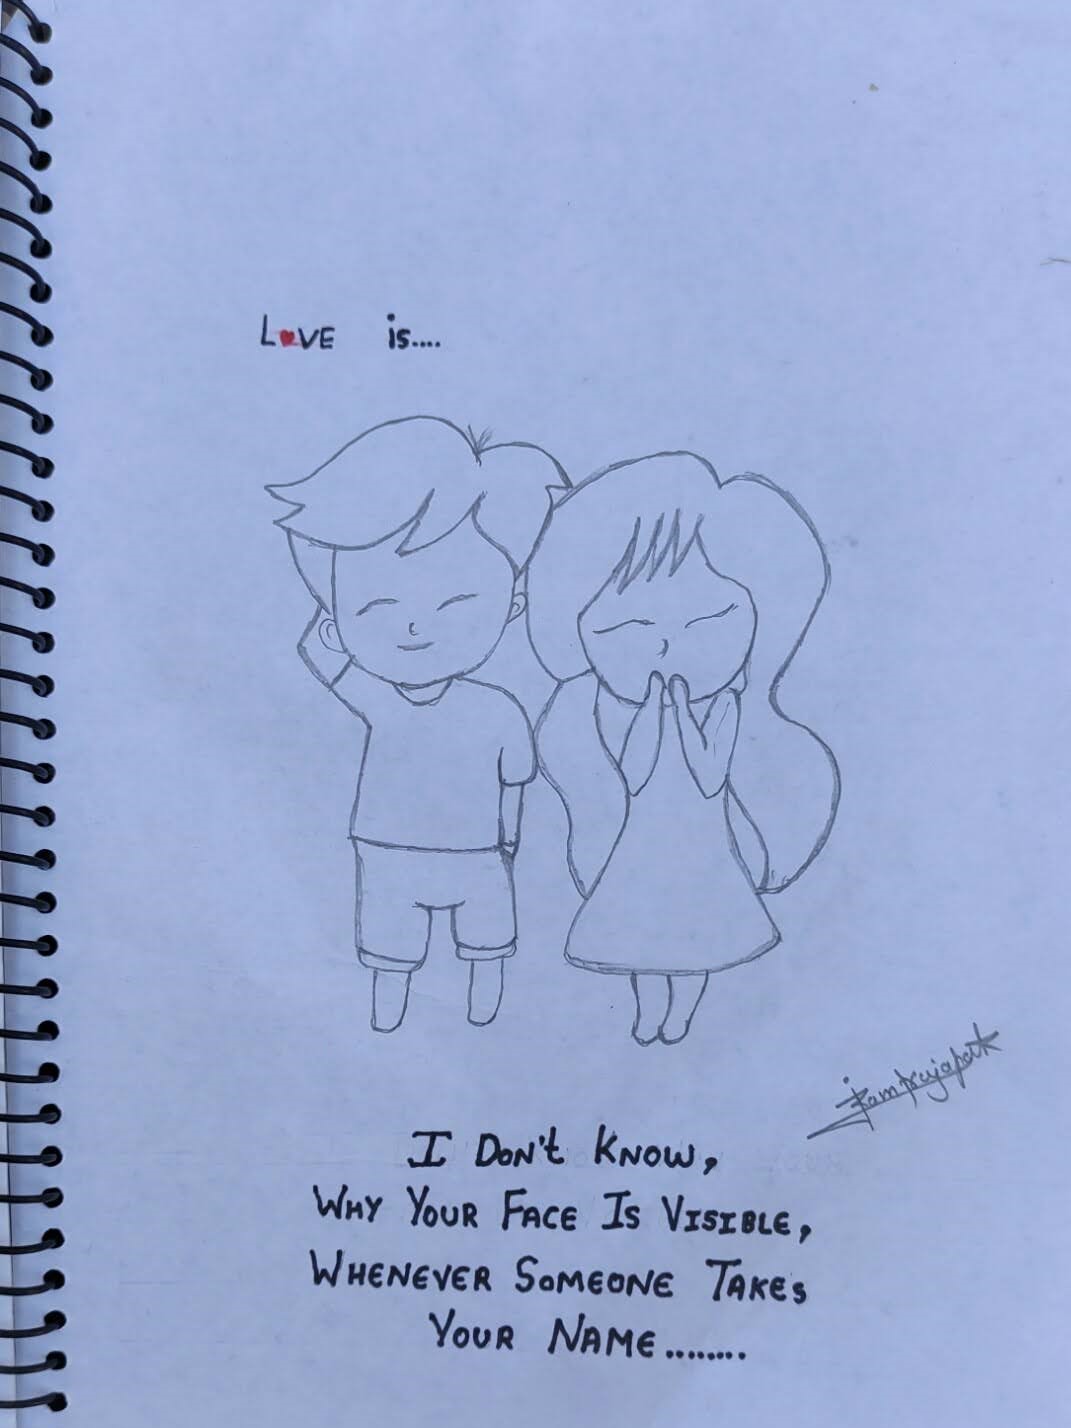 LOVE is....
iramprajapat
I DON'T KNOW,
WHY YOUR FACE IS VISIBLE,
WHENEVER SOMEONE TAKES
YOUR NAME........